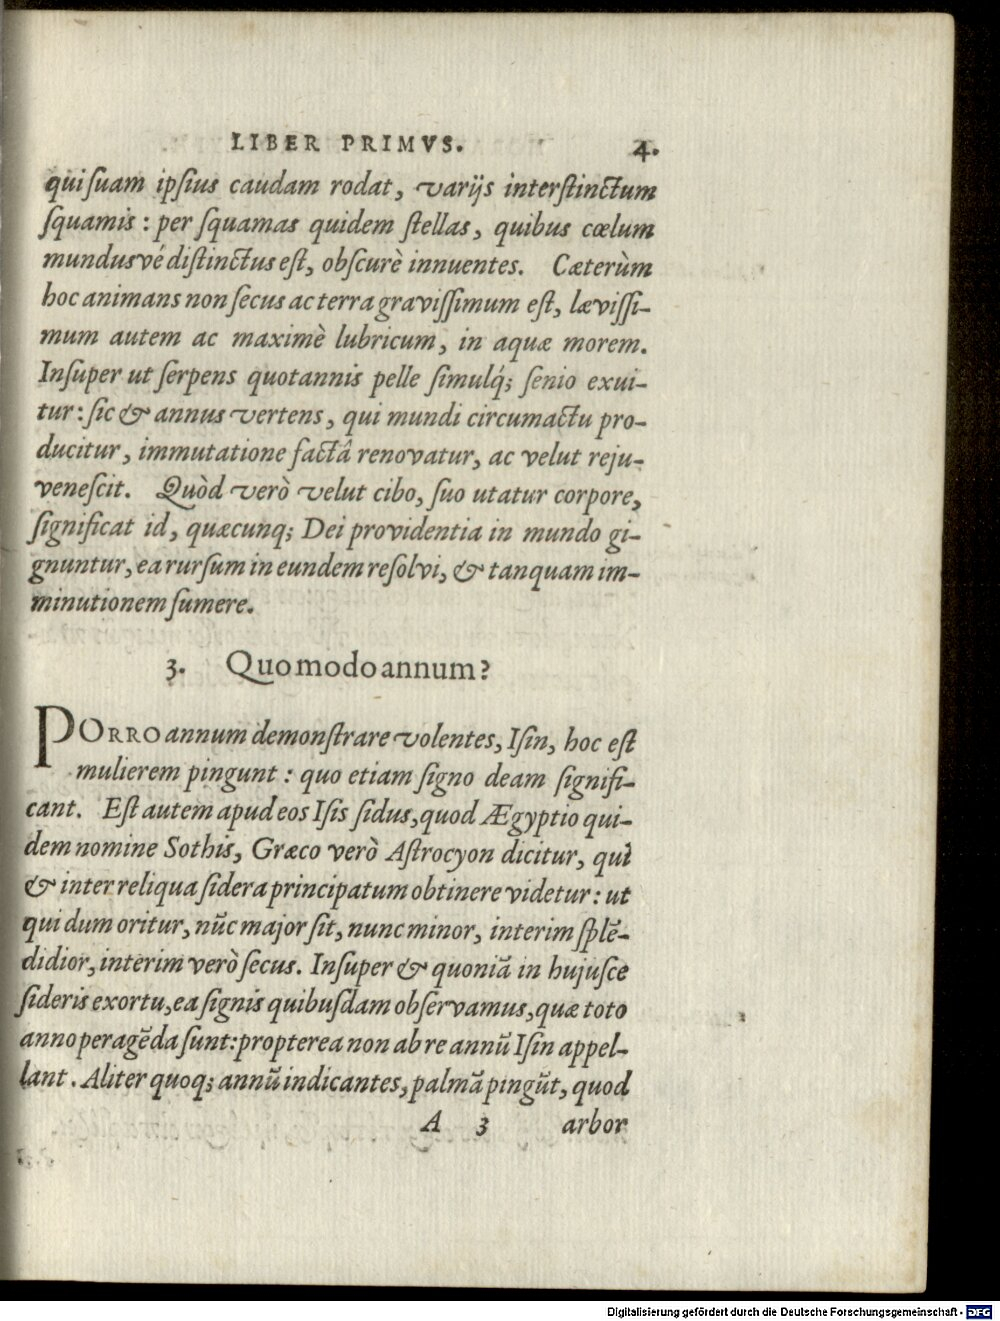 LIBER PRIMVS. 4.
qui ſuam ipſius caudam rodat, varijs interſtinctum
ſquamis : per ſquamas quidem ſtellas, quibus cœlum
mundusvé diſtinctus eſt, obſcurè innuentes. Cæterùm
hoc animans non ſecus ac terra graviſſimum eſt, læviſſi-
mum autem ac maximè lubricum, in aquæ morem.
Inſuper ut ſerpens quotannis pelle ſimulq́; ſenio exui-
tur : ſic & annus vertens, qui mundi circumactu pro-
ducitur, immutatione factâ renovatur, ac velut reju-
veneſcit. Quòd verò velut cibo, ſuo utatur corpore,
ſignificat id, quæcunq; Dei providentia in mundo gi-
gnuntur, ea rurſum in eundem reſolvi, & tanquam im-
minutionem ſumere.
3. Quomodo annum?
PORRO annum demonſtrare volentes, Iſin, hoc eſt
mulierem pingunt : quo etiam ſigno deam ſignifi-
cant. Eſt autem apud eos Iſis ſidus, quod Ægyptio qui-
dem nomine Sothis, Græco verò Aſtrocyon dicitur, qui
& inter reliqua ſidera principatum obtinere videtur : ut
qui dum oritur, nūc major ſit, nunc minor, interim ſplē-
didior, interim verò ſecus. Inſuper & quoniā in hujuſce
ſideris exortu, ea ſignis quibuſdam obſervamus, quæ toto
anno peragēda ſunt: propterea non ab re annū Iſin appel-
lant. Aliter quoq; annū indicantes, palmā pingūt, quod
A 3 arbor
Digitalisierung gefördert durch die Deutsche Forschungsgemeinschaft - DFG